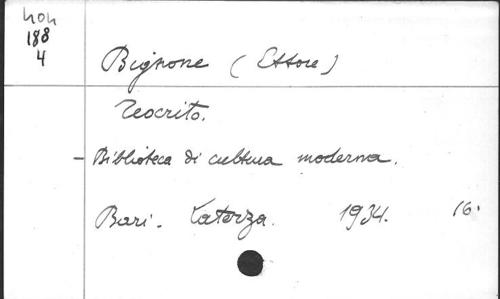 non
188
4
Bignone (Ettore)
Teocrito.
- Biblioteca di cultura moderna.
Bari. Laterza. 1934. 16.